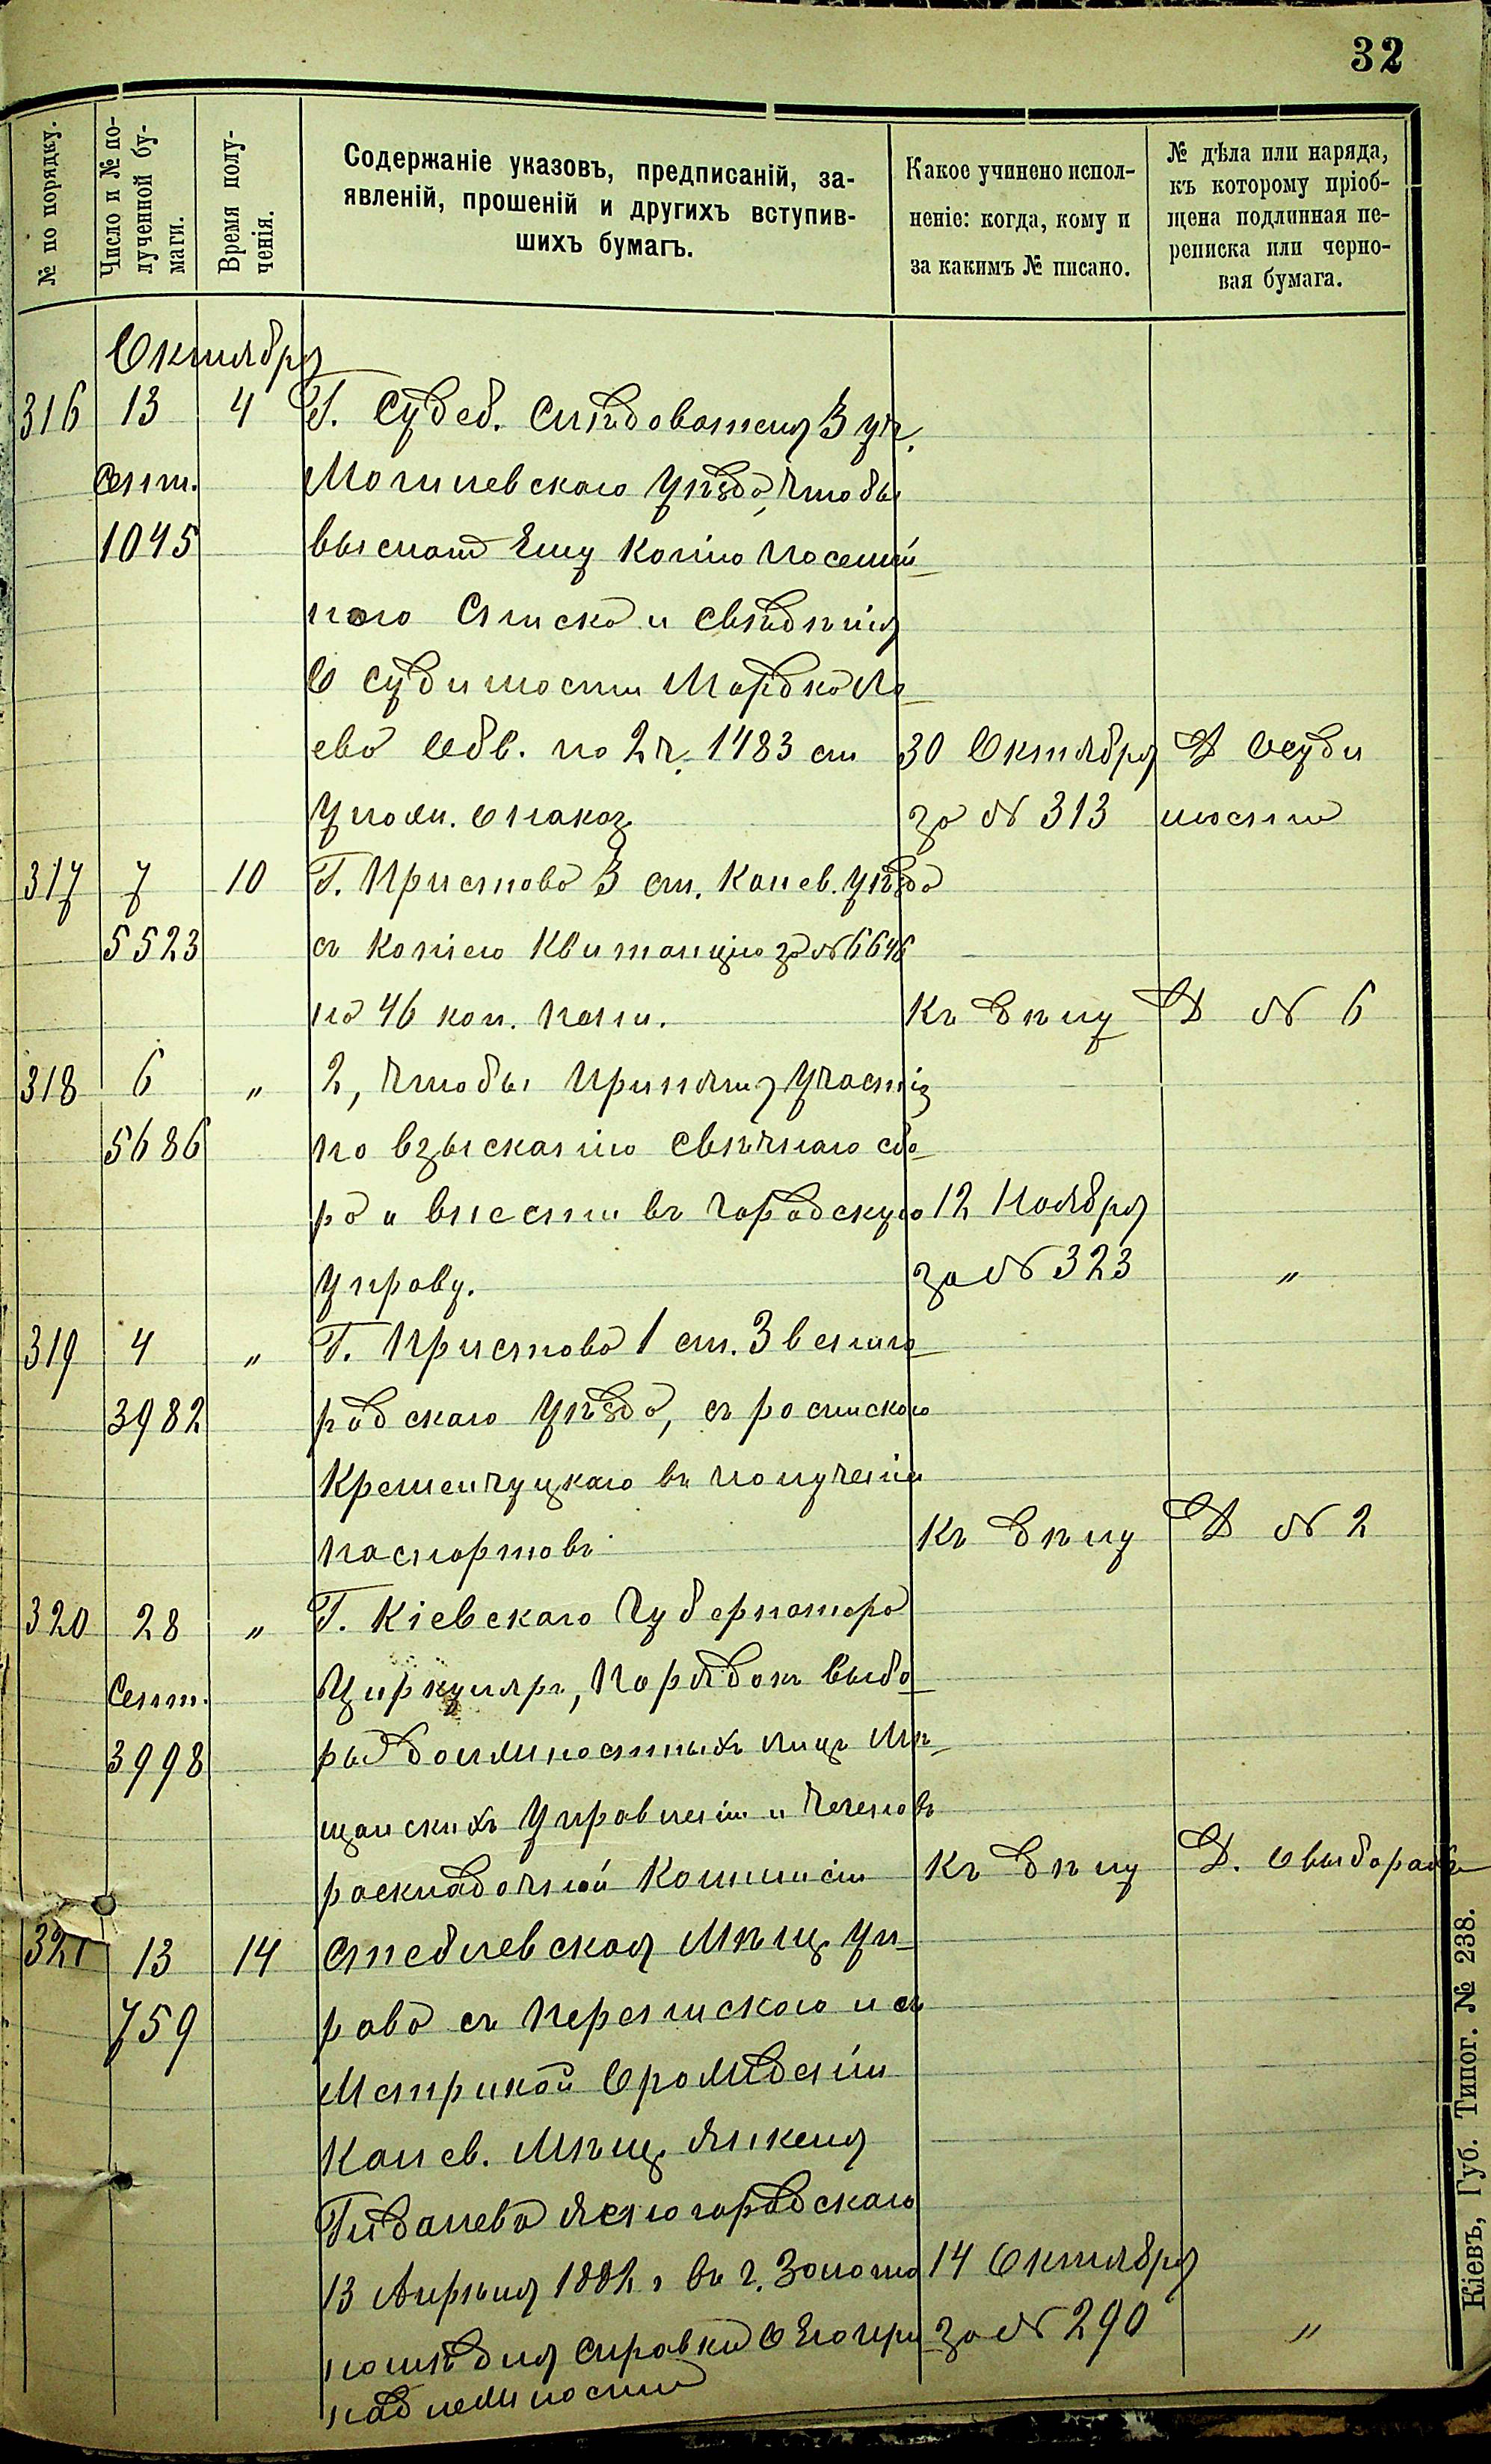 32
№ по порядку.
Число и № по-
лученной бу-
маги.
Время полу-
ченія.
Содержаніе указовъ, предписаній, за-
явленій, прошеній и другихъ вступив-
шихъ бумагъ.
Какое учинено испол-
неніе: когда, кому и
за какимъ № писано.
№ дѣла или наряда,
къ которому пріоб-
щена подлинная пе-
реписка или черно-
вая бумага.
Октября
316 13 4 Г. Судеб. Слѣдователя 3 уч.
Сент. Могилевскаго уѣзда, чтобы
1045 выслать Ему копію посемей-
наго Списка и свѣдѣнія
О судимости Мордка
ева обв. по 2 ч. 1483 ст 30 Октября Д Осуди
улож. о наказ. за № 313 мости
317 7 10 Г. Пристава 3 ст. Канев. уѣзда
5523 съ копіею квитанціи за № 6646
на 46 коп. Къ дѣлу Д № 6
318 6 „ 2, чтобы принять участіе
5686 по взысканію свѣчнаго сбо-
ра и внести въ городскую 12 Ноября
управу. за № 323 „
319 4 „ Г. Пристава 1 ст. Звениго-
3982 родскаго уѣзда, съ роспискою
Кременчуцкаго въ полученіи
паспортовъ Къ дѣлу Д № 2
320 28 „ Г. Кіевскаго Губернатора
Сент. Циркуляръ, Порядокъ выбо-
3998 ры должностныхъ лицъ Мѣ-
щанскихъ Управленій и членовъ
раскладочной Комиссіи Къ дѣлу Д. О выборахъ
321 13 14 Стеблевская Мѣщ. Уп-
759 рава съ перепискою и съ
Метрикой О рожденіи
Канев. Мѣщ. Янкеля
Гидалева Ясногородскаго
13 Апрѣля 1882 г. въ г. Золото 14 Октября
ноша для справки О Его при за № 290 „
надлежности
Кіевъ, Губ. Типог. № 238.